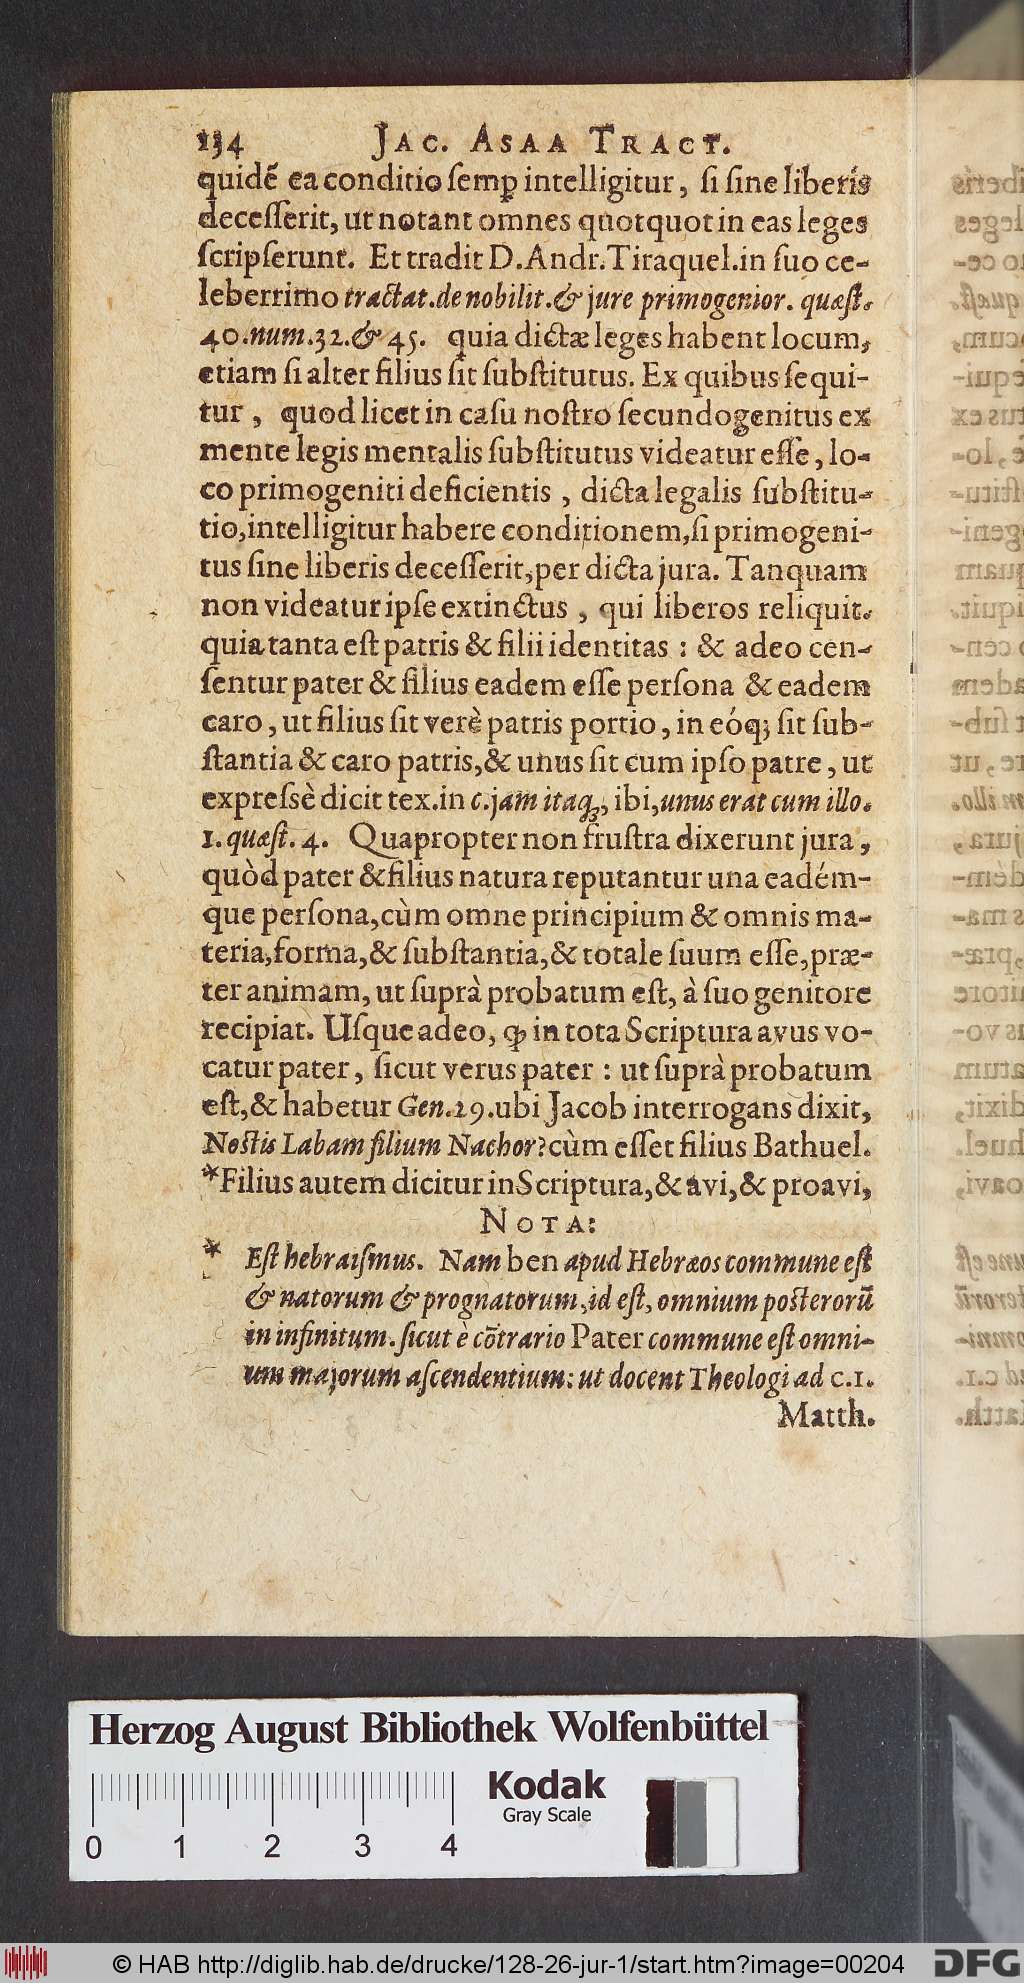 134 JAC. ASAA TRACT.
quidē ea conditio ſemꝑ intelligitur, ſi ſine liberis
deceſſerit, ut notant omnes quotquot in eas leges
ſcripſerunt. Et tradit D. Andr. Tiraquel. in ſuo ce-
leberrimo tractat. de nobilit. & jure primogenior. quæſt.
40. num. 32. & 45. quia dictæ leges habent locum,
etiam ſi alter filius ſit ſubſtitutus. Ex quibus ſequi-
tur, quod licet in caſu noſtro ſecundogenitus ex
mente legis mentalis ſubſtitutus videatur eſſe, lo-
co primogeniti deficientis, dicta legalis ſubſtitu-
tio, intelligitur habere conditionem, ſi primogeni-
tus ſine liberis deceſſerit, per dicta jura. Tanquam
non videatur ipſe extinctus, qui liberos reliquit.
quia tanta eſt patris & filii identitas: & adeo cen-
ſentur pater & filius eadem eſſe perſona & eadem
caro, ut filius ſit verè patris portio, in eóq; ſit ſub-
ſtantia & caro patris, & unus ſit cum ipſo patre, ut
expreſsè dicit tex. in c. jam itaq;, ibi, unus erat cum illo.
1. quæſt. 4. Quapropter non fruſtra dixerunt jura,
quòd pater & filius natura reputantur una eadém-
que perſona, cùm omne principium & omnis ma-
teria, forma, & ſubſtantia, & totale ſuum eſſe, præ-
ter animam, ut ſuprà probatum eſt, à ſuo genitore
recipiat. Uſque adeo, ꝙ in tota Scriptura avus vo-
catur pater, ſicut verus pater: ut ſuprà probatum
eſt, & habetur Gen. 29. ubi Jacob interrogans dixit,
Noſtis Labam filium Nachor? cùm eſſet filius Bathuel.
*Filius autem dicitur in Scriptura, & avi, & proavi,
NOTA:
* Eſt hebraiſmus. Nam ben apud Hebræos commune eſt
& natorum & prognatorum, id eſt, omnium poſterorū
in infinitum. ſicut è cōtrario Pater commune eſt omni-
um majorum aſcendentium: ut docent Theologi ad c.1.
Matth.
Herzog August Bibliothek Wolfenbüttel
Kodak
Gray Scale
0 1 2 3 4
© HAB http://diglib.hab.de/drucke/128-26-jur-1/start.htm?image=00204
DFG